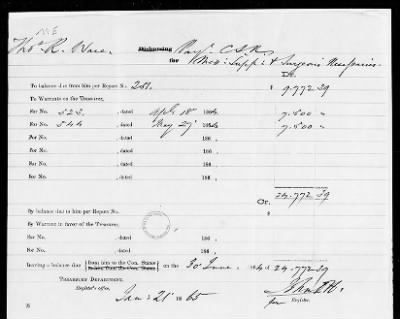 ME
Thos. R. Ware. Disbursing Payr. C.S.N.
for Med: Supp: & Surgeons Necessaries
Dr.
To balance due from him per Report No. 251. $ 9.772 39
To Warrants on the Treasurer,
For No. 522. , dated Apl. 18th 1864 7.500 "
For No. 544 , dated May 27 1864 7.500 "
For No. , dated 186 .
For No. , dated 186 .
For No. , dated 186 .
For No. , dated 186 .
24.772 39
Cr.
By balance due to him per Report No.
By Warrant in favor of the Treasurer,
For No. , dated 186 .
For No. , dated 186 .
leaving a balance due from him to the Con. States on the 30 June , 1864 24.772 39
TREASURY DEPARTMENT,
Register's office,
Jan: 21 1865
for Register.